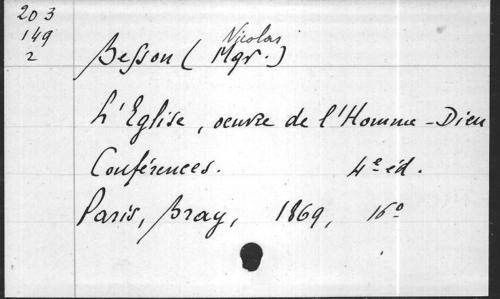 203
149
2
Nicolas
Besson (Mgr.)
L'Eglise, oeuvre de l'Homme-Dieu
Conférences. 4e éd.
Paris, Bray, 1869, 16o